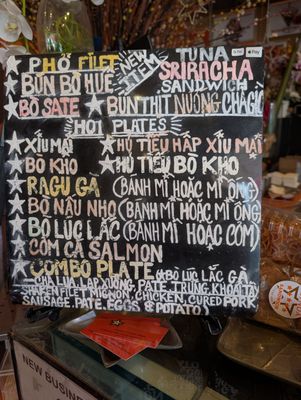 PHỞ FILET
NEW ITEM
TUNA
SRIRACHA
SANDWICH
Pay
BÚN BÒ HUẾ
BÒ SATE
BÚN THỊT NƯỚNG CHẢ GIÒ
HOT PLATES
XÍU MẠI
HỦ TIẾU HẤP XÍU MẠI
BÒ KHO
HỦ TIẾU BÒ KHO
RAGU GÀ (BÁNH MÌ HOẶC MÌ ỐNG)
BÒ NẤU NHO (BÁNH MÌ HOẶC MÌ ỐNG)
BÒ LÚC LẮC (BÁNH MÌ HOẶC CƠM)
CƠM CÁ SALMON
COMBO PLATE
BÒ LÚC LẮC GÀ
CHẢ LỤA, LẠP XƯỞNG, PATE, TRỨNG, KHOAI TÂY
SHAKEN FILET MIGNON, CHICKEN, CURED PORK
SAUSAGE, PATE, EGGS & POTATO)
NEW BUSINESS